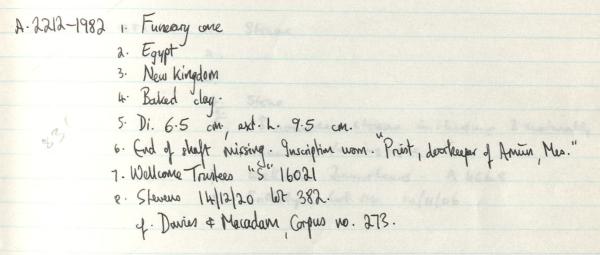 A.2212-1982 1. Funerary cone
2. Egypt
3. New Kingdom
4. Baked clay.
5. Di. 6.5 cm, ext. L. 9.5 cm.
6. End of shaft missing. Inscription worn. "Priest, doorkeeper of Amūn, Mes."
7. Wellcome Trustees "S" 16021
8. Stevens 14/12/20 lot 382.
cf. Davies & Macadam, Corpus no. 273.